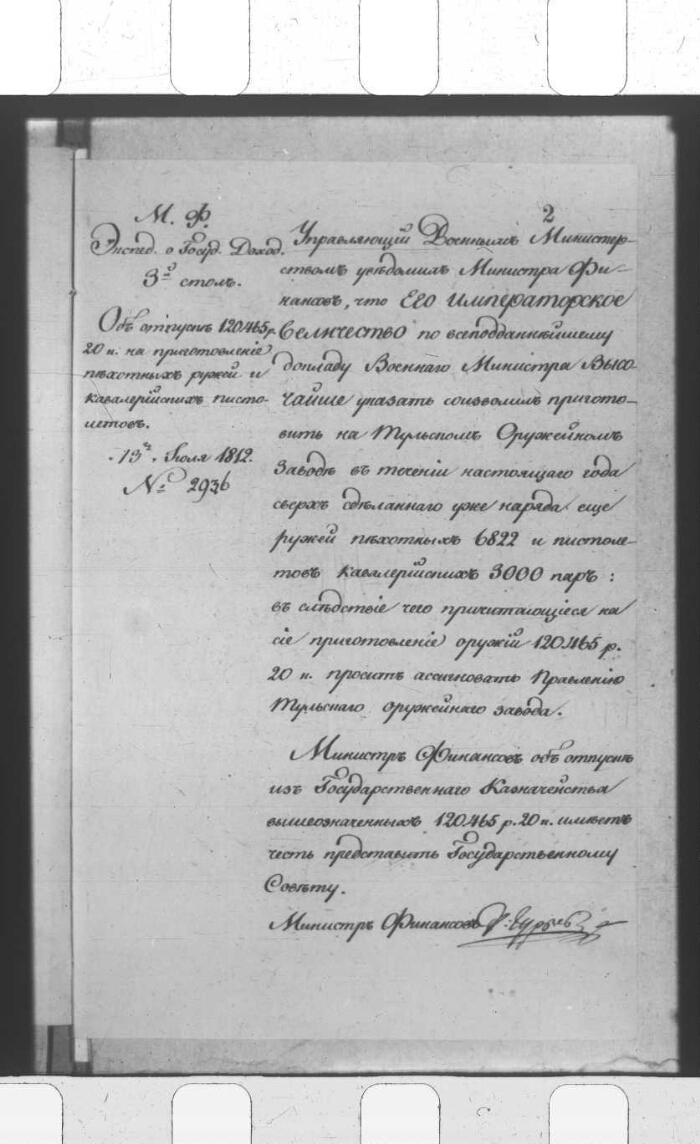 М. Ф.
Экспед. о Госуд. Доход.
3й столъ.
Объ отпускѣ 120.465 р.
20 к. на приготовленіе
пѣхотныхъ ружей и
кавалерійскихъ писто-
летовъ.
13го Іюля 1812.
№ 2936
2
Управляющій Военнымъ Министер-
ствомъ увѣдомилъ Министра Фи-
нансовъ, что Его Императорское
Величество по всеподданнѣйшему
докладу Военнаго Министра Высо-
чайше указать соизволилъ пригото-
вить на Тульскомъ Оружейномъ
Заводѣ въ теченіи настоящаго года
сверхъ сдѣланнаго уже наряда еще
ружей пѣхотныхъ 6822 и пистоле-
товъ кавалерійскихъ 3000 паръ:
въ слѣдствіе чего причитающіеся на
сіе приготовленіе оружій 120.465 р.
20 к. проситъ ассигновать Правленію
Тульскаго оружейнаго завода.
Министръ Финансовъ объ отпускѣ
изъ Государственнаго Казначейства
вышеозначенныхъ 120.465 р. 20 к. имѣетъ
честь представить Государственному
Совѣту.
Министръ Финансовъ Гурьевъ